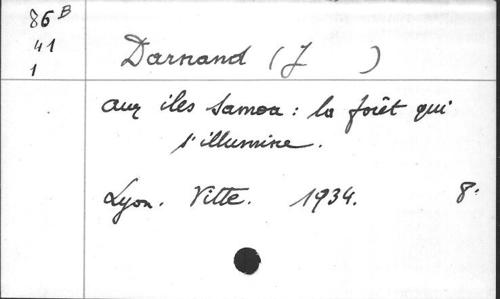 86 B
41
1
Darnand (J )
aux iles Samoa : la forêt qui
s'illumine.
Lyon. Vitte. 1934. 8°